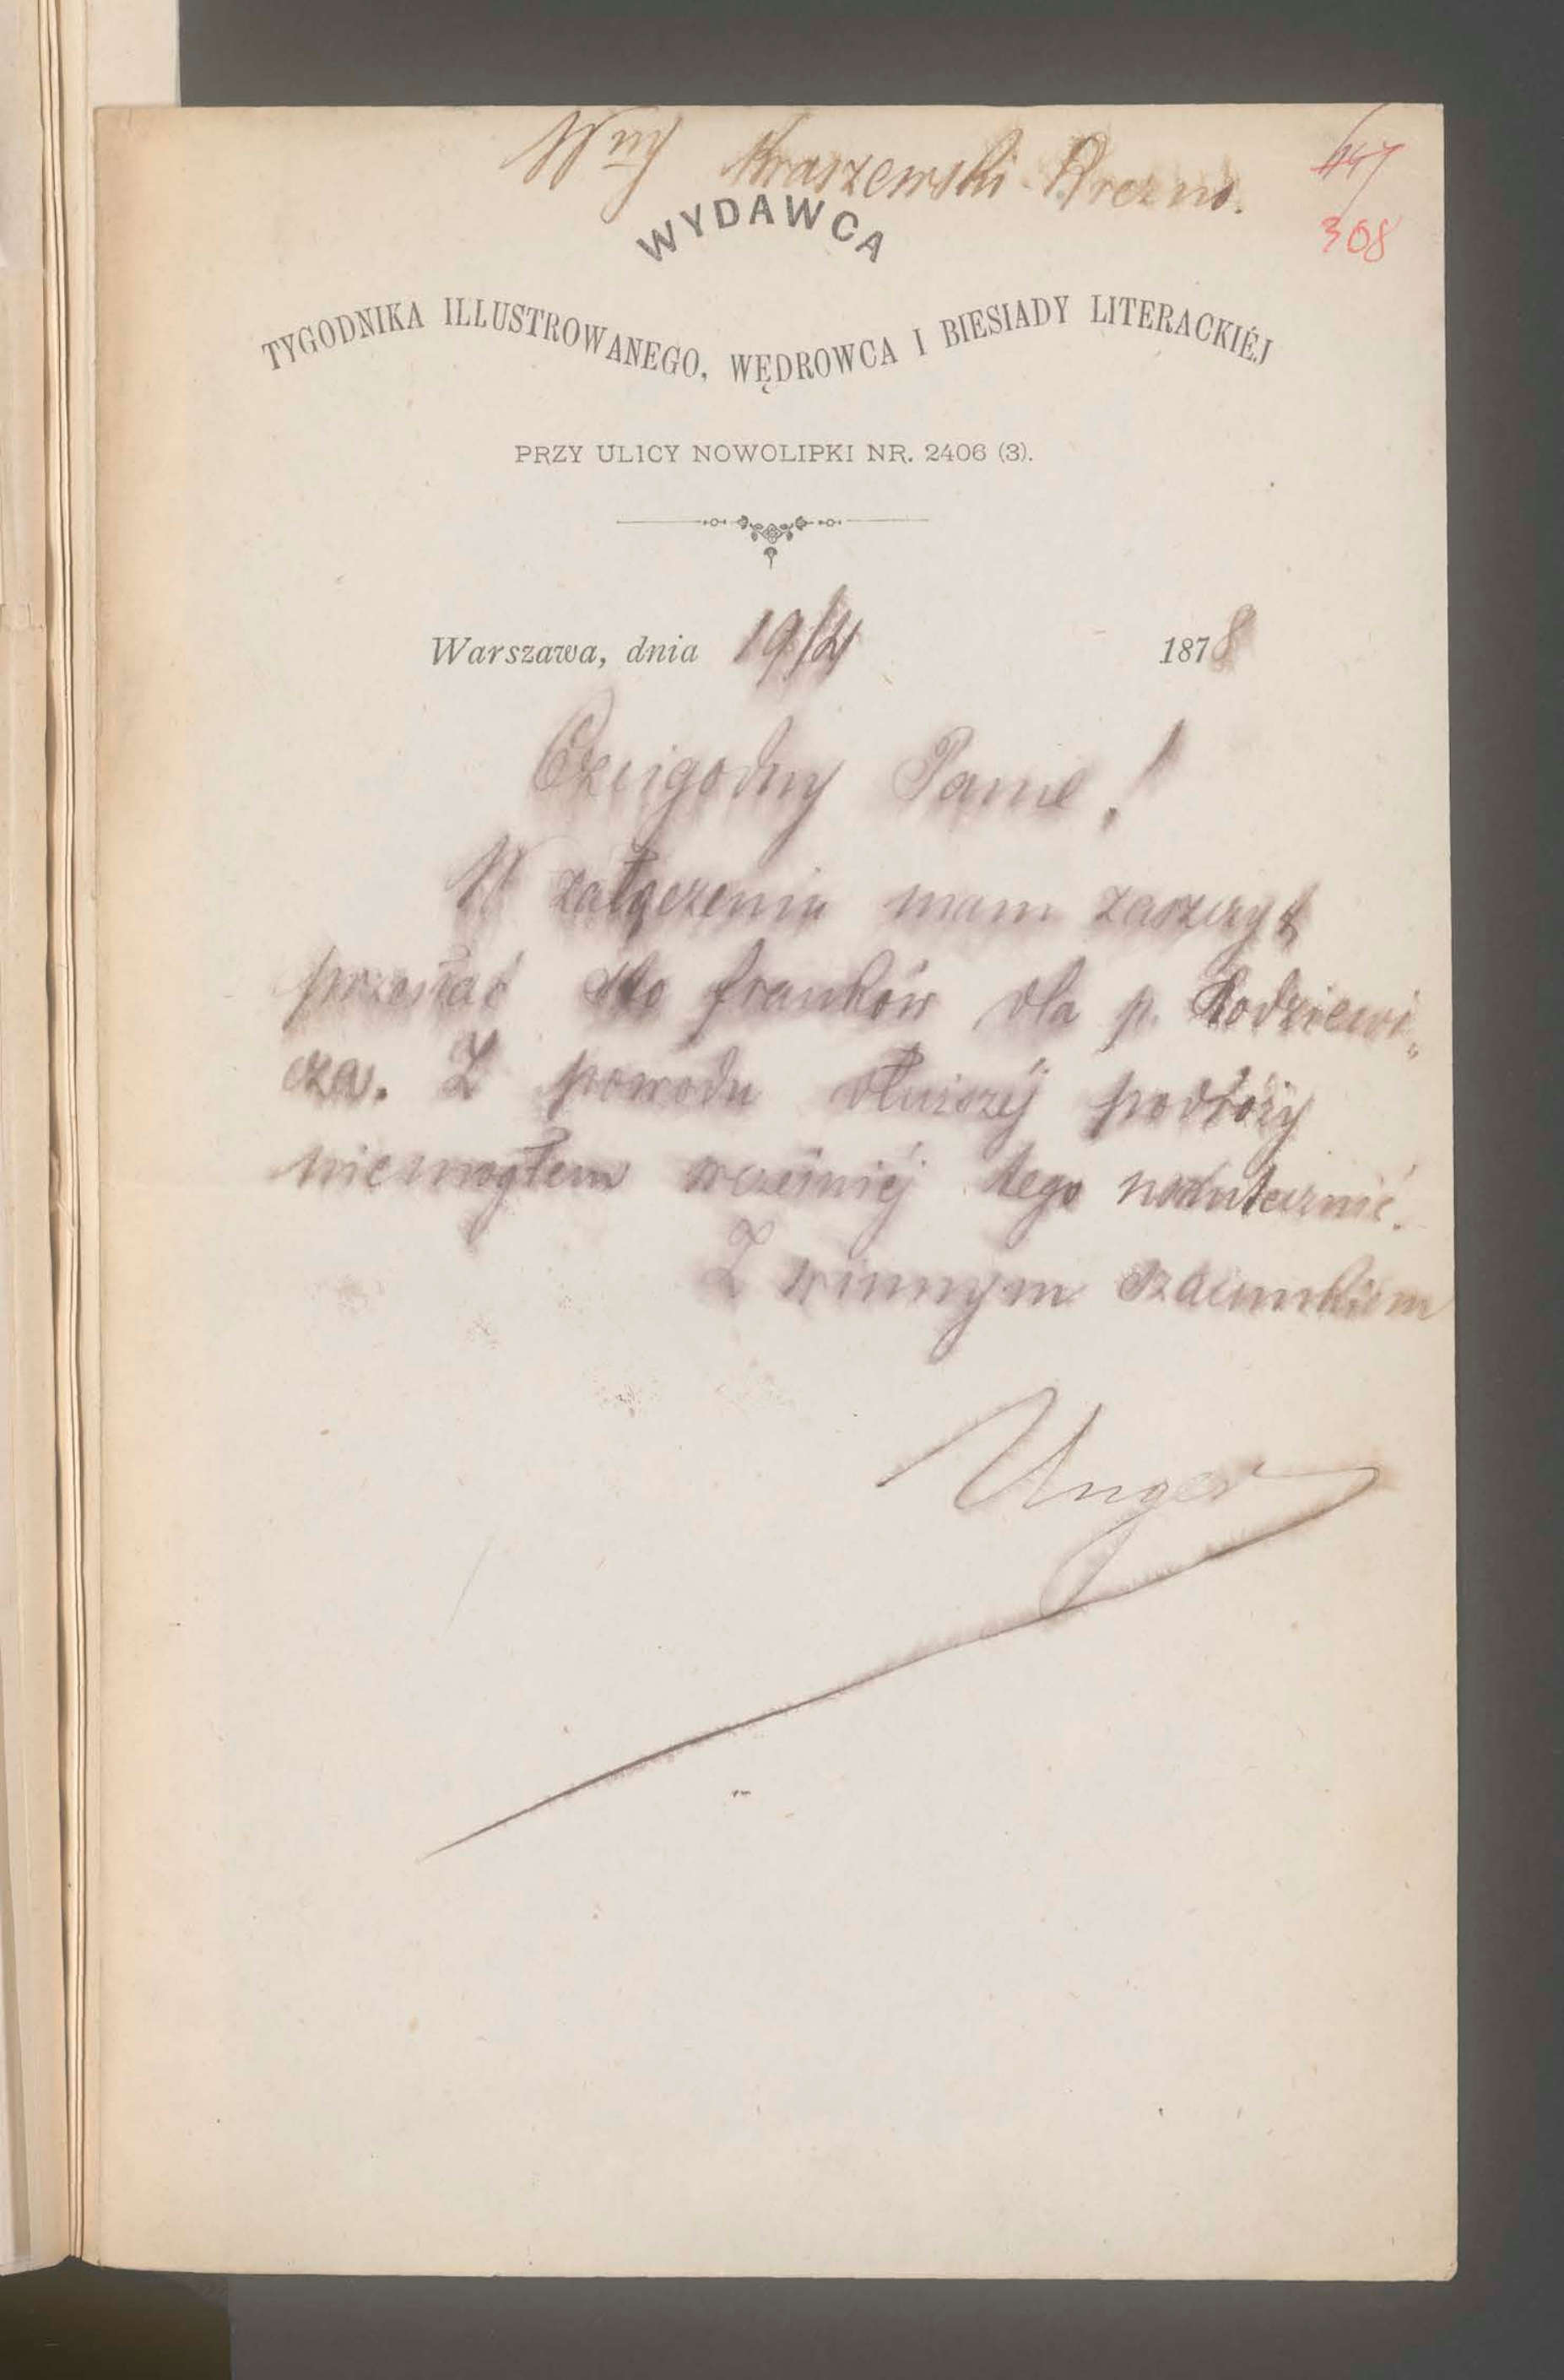 Wny Kraszewski Drezno.
447
308
WYDAWCA
TYGODNIKA ILLUSTROWANEGO, WĘDROWCA I BIESIADY LITERACKIÉJ
PRZY ULICY NOWOLIPKI NR. 2406 (3).
Warszawa, dnia 19/4 1878
Czcigodny Panie!
W załączeniu mam zaszczyt
przesłać sto franków dla p. Rodziewi„
cza. Z powodu dłuższéj podróży
niemogłem wcześniéj tego uskutecznić.
Z winnym szacunkiem
Unger